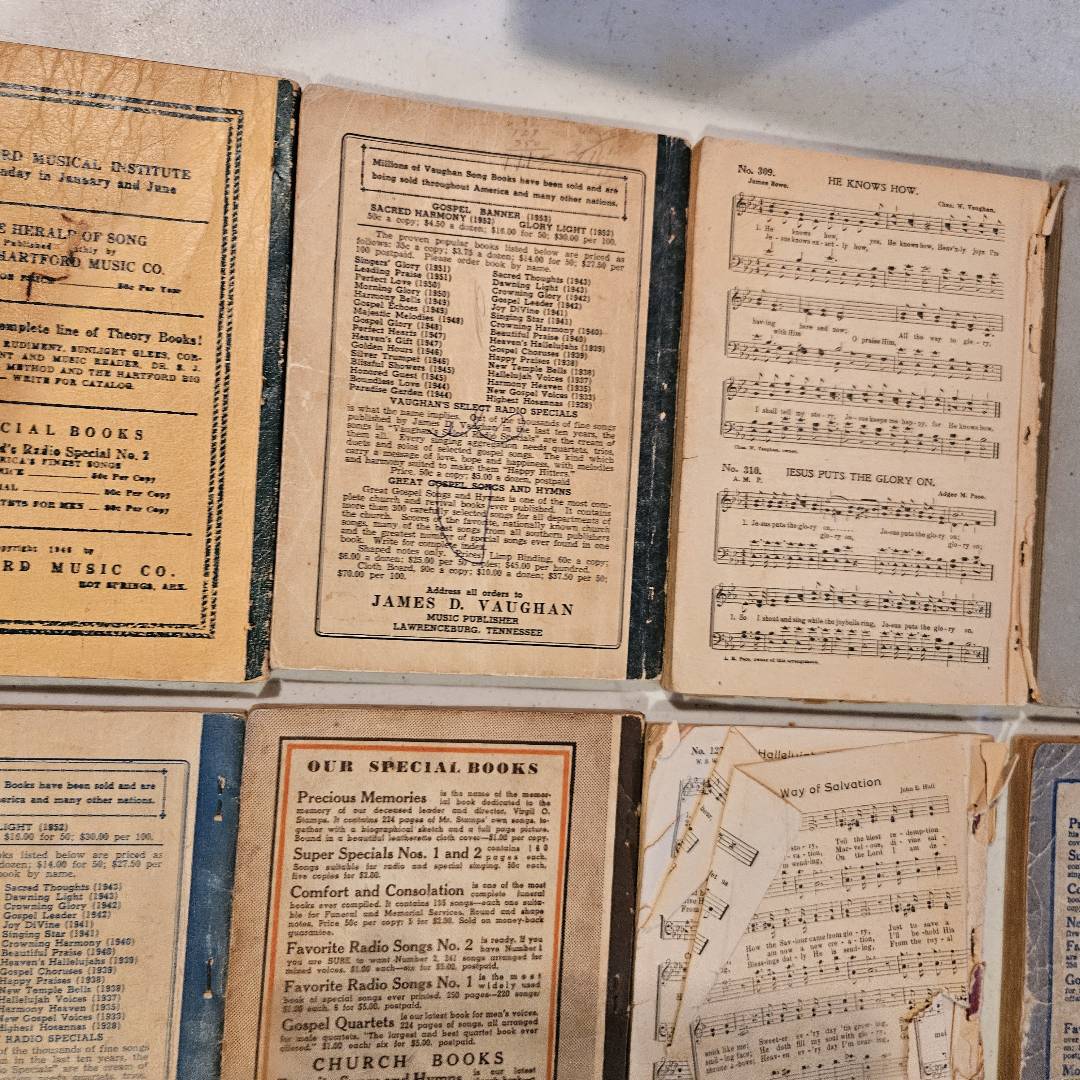 RD MUSICAL INSTITUTE
nday in January and June
E HERALD OF SONG
Published
HARTFORD MUSIC CO.
50c Per Year
omplete line of Theory Books!
RUDIMENT, SUNLIGHT GLEES, COR-
NT AND MUSIC READER, DR. S. J.
METHOD AND THE HARTFORD BIG
— WRITE FOR CATALOG.
CIAL BOOKS
d's Radio Special No. 2
RICA'S FINEST SONGS
50c Per Copy
50c Per Copy
TETS FOR MEN 50c Per Copy
opyright 1946 by
RD MUSIC CO.
HOT SPRINGS, ARK.
Millions of Vaughan Song Books have been sold and are
being sold throughout America and many other nations.
GOSPEL BANNER (1953)
SACRED HARMONY (1952) GLORY LIGHT (1952)
50c a copy; $4.50 a dozen; $16.00 for 50; $30.00 per 100.
The proven popular books listed below are priced as
follows: 35c a copy; $3.75 a dozen; $14.00 for 50; $27.50 per
100 postpaid. Please order book by name.
Singers' Glory (1951)
Leading Praise (1951)
Perfect Love (1950)
Morning Glory (1950)
Harmony Bells (1949)
Gospel Echoes (1949)
Majestic Melodies (1948)
Gospel Glory (1948)
Perfect Hearts (1947)
Heaven's Gift (1947)
Golden Hours (1946)
Silver Trumpet (1946)
Blissful Showers (1945)
Honored Guest (1945)
Boundless Love (1944)
Paradise Garden (1944)
Sacred Thoughts (1943)
Dawning Light (1943)
Crowning Glory (1942)
Gospel Leader (1942)
Joy DiVine (1941)
Singing Star (1941)
Crowning Harmony (1940)
Beautiful Praise (1940)
Heaven's Hallelujahs (1939)
Gospel Choruses (1939)
Happy Praises (1938)
New Temple Bells (1938)
Hallelujah Voices (1937)
Harmony Heaven (1935)
New Gospel Voices (1933)
Highest Hosannas (1928)
VAUGHAN'S SELECT RADIO SPECIALS
is what the name implies. Out of the thousands of fine songs
published by James D. Vaughan in the last ten years, the
songs in "Vaughan's Select Radio Specials" are the cream of
them all. Every singing aggregation needs quartets, trios,
duets and solos of selected gospel songs. The kind which
carry a message of love, hope and happiness, with melodies
and harmony suited to make them "Happy Hitters."
Price, 50c a copy; $5.00 a dozen, postpaid
GREAT GOSPEL SONGS AND HYMNS
Great Gospel Songs and Hymns is one of the most com-
plete church and revival books ever published. It contains
more than 300 carefully selected songs for all departments of
the church. Scores of the favorite, nationally known church
songs, many of the best songs from all southern publishers
and the greatest number of special songs ever found in one
book. Write for complete index.
Shaped notes only. Prices: Limp Binding, 60c a copy;
$6.00 a dozen; $25.00 per 50 copies; $45.00 per hundred.
Cloth Board, 90c a copy; $10.00 a dozen; $37.50 per 50;
$70.00 per 100.
Address all orders to
JAMES D. VAUGHAN
MUSIC PUBLISHER
LAWRENCEBURG, TENNESSEE
No. 309. HE KNOWS HOW.
James Rowe. Chas. W. Vaughan.
1. He knows how, yes, He knows how, Heav'n-ly joys I'm
Je - sus knows ex - act - ly how,
hav-ing here and now; All the way to glo - ry,
with Him O praise Him,
I shall tell my sto - ry, Je - sus keeps me hap - py, for He knows how.
Chas. W. Vaughan, owner.
No. 310. JESUS PUTS THE GLORY ON.
A. M. P. Adger M. Pace.
1. Je-sus puts the glo-ry on, Je-sus puts the glo-ry on;
glo-ry on, glo-ry on;
1. So I shout and sing while the joybells ring, Je-sus puts the glo-ry on.
A. M. Pace, owner of this arrangement.
Books have been sold and are
erica and many other nations.
IGHT (1952)
$16.00 for 50; $30.00 per 100.
oks listed below are priced as
dozen; $14.00 for 50; $27.50 per
book by name.
Sacred Thoughts (1943)
Dawning Light (1943)
Crowning Glory (1942)
Gospel Leader (1942)
Joy DiVine (1941)
Singing Star (1941)
Crowning Harmony (1940)
Beautiful Praise (1940)
Heaven's Hallelujahs (1939)
Gospel Choruses (1939)
Happy Praises (1938)
New Temple Bells (1938)
Hallelujah Voices (1937)
Harmony Heaven (1935)
New Gospel Voices (1933)
Highest Hosannas (1928)
RADIO SPECIALS
of the thousands of fine songs
n in the last ten years, the
o Specials" are the cream of
OUR SPECIAL BOOKS
Precious Memories is the name of the memor-
ial book dedicated to the
memory of our deceased leader and director, Virgil O.
Stamps. It contains 224 pages of Mr. Stamps' own songs, to-
gether with a biographical sketch and a full page picture.
Bound in a beautiful leatherette cloth cover—$1.00 per copy.
Super Specials Nos. 1 and 2 contains 160
pages each.
Songs suitable for radio and special singing. 50c each,
five copies for $2.00.
Comfort and Consolation is one of the most
complete funeral
books ever compiled. It contains 155 songs—each one suita-
ble for Funeral and Memorial Services. Round and shape
notes. Price 50c per copy; 5 for $2.00. Sold on money-back
guarantee.
Favorite Radio Songs No. 2 is ready. If you
have Number 1
you are SURE to want Number 2. 241 songs arranged for
mixed voices. $1.00 each—six for $5.00, postpaid.
Favorite Radio Songs No. 1 is the most
widely used
book of special songs ever printed. 250 pages—220 songs
$1.00 each, 6 for $5.00, postpaid.
Gospel Quartets is our latest book for men's voices.
224 pages of songs, all arranged
for male quartets. "The largest and best quartet book ever
offered." $1.00 each; six for $5.00, postpaid.
CHURCH BOOKS
is our latest
No. 127 Hallelujah
Way of Salvation
John E. Hall
Tell the blest re - demp-tion
Mar - vel - ous, di - vine sal
On the Lord I am de
How the Sav-iour came from glo - ry, Just to save a
I am now a new cre - a - tion, I'll be-hold His
Bless-ings dai - ly He is send-ing, From the roy - al
Sweet-er ev - 'ry day 'tis grow - ing,
He doth fill my soul with glo - ry,
Heav-en ev - 'ry day I'm near-ing,